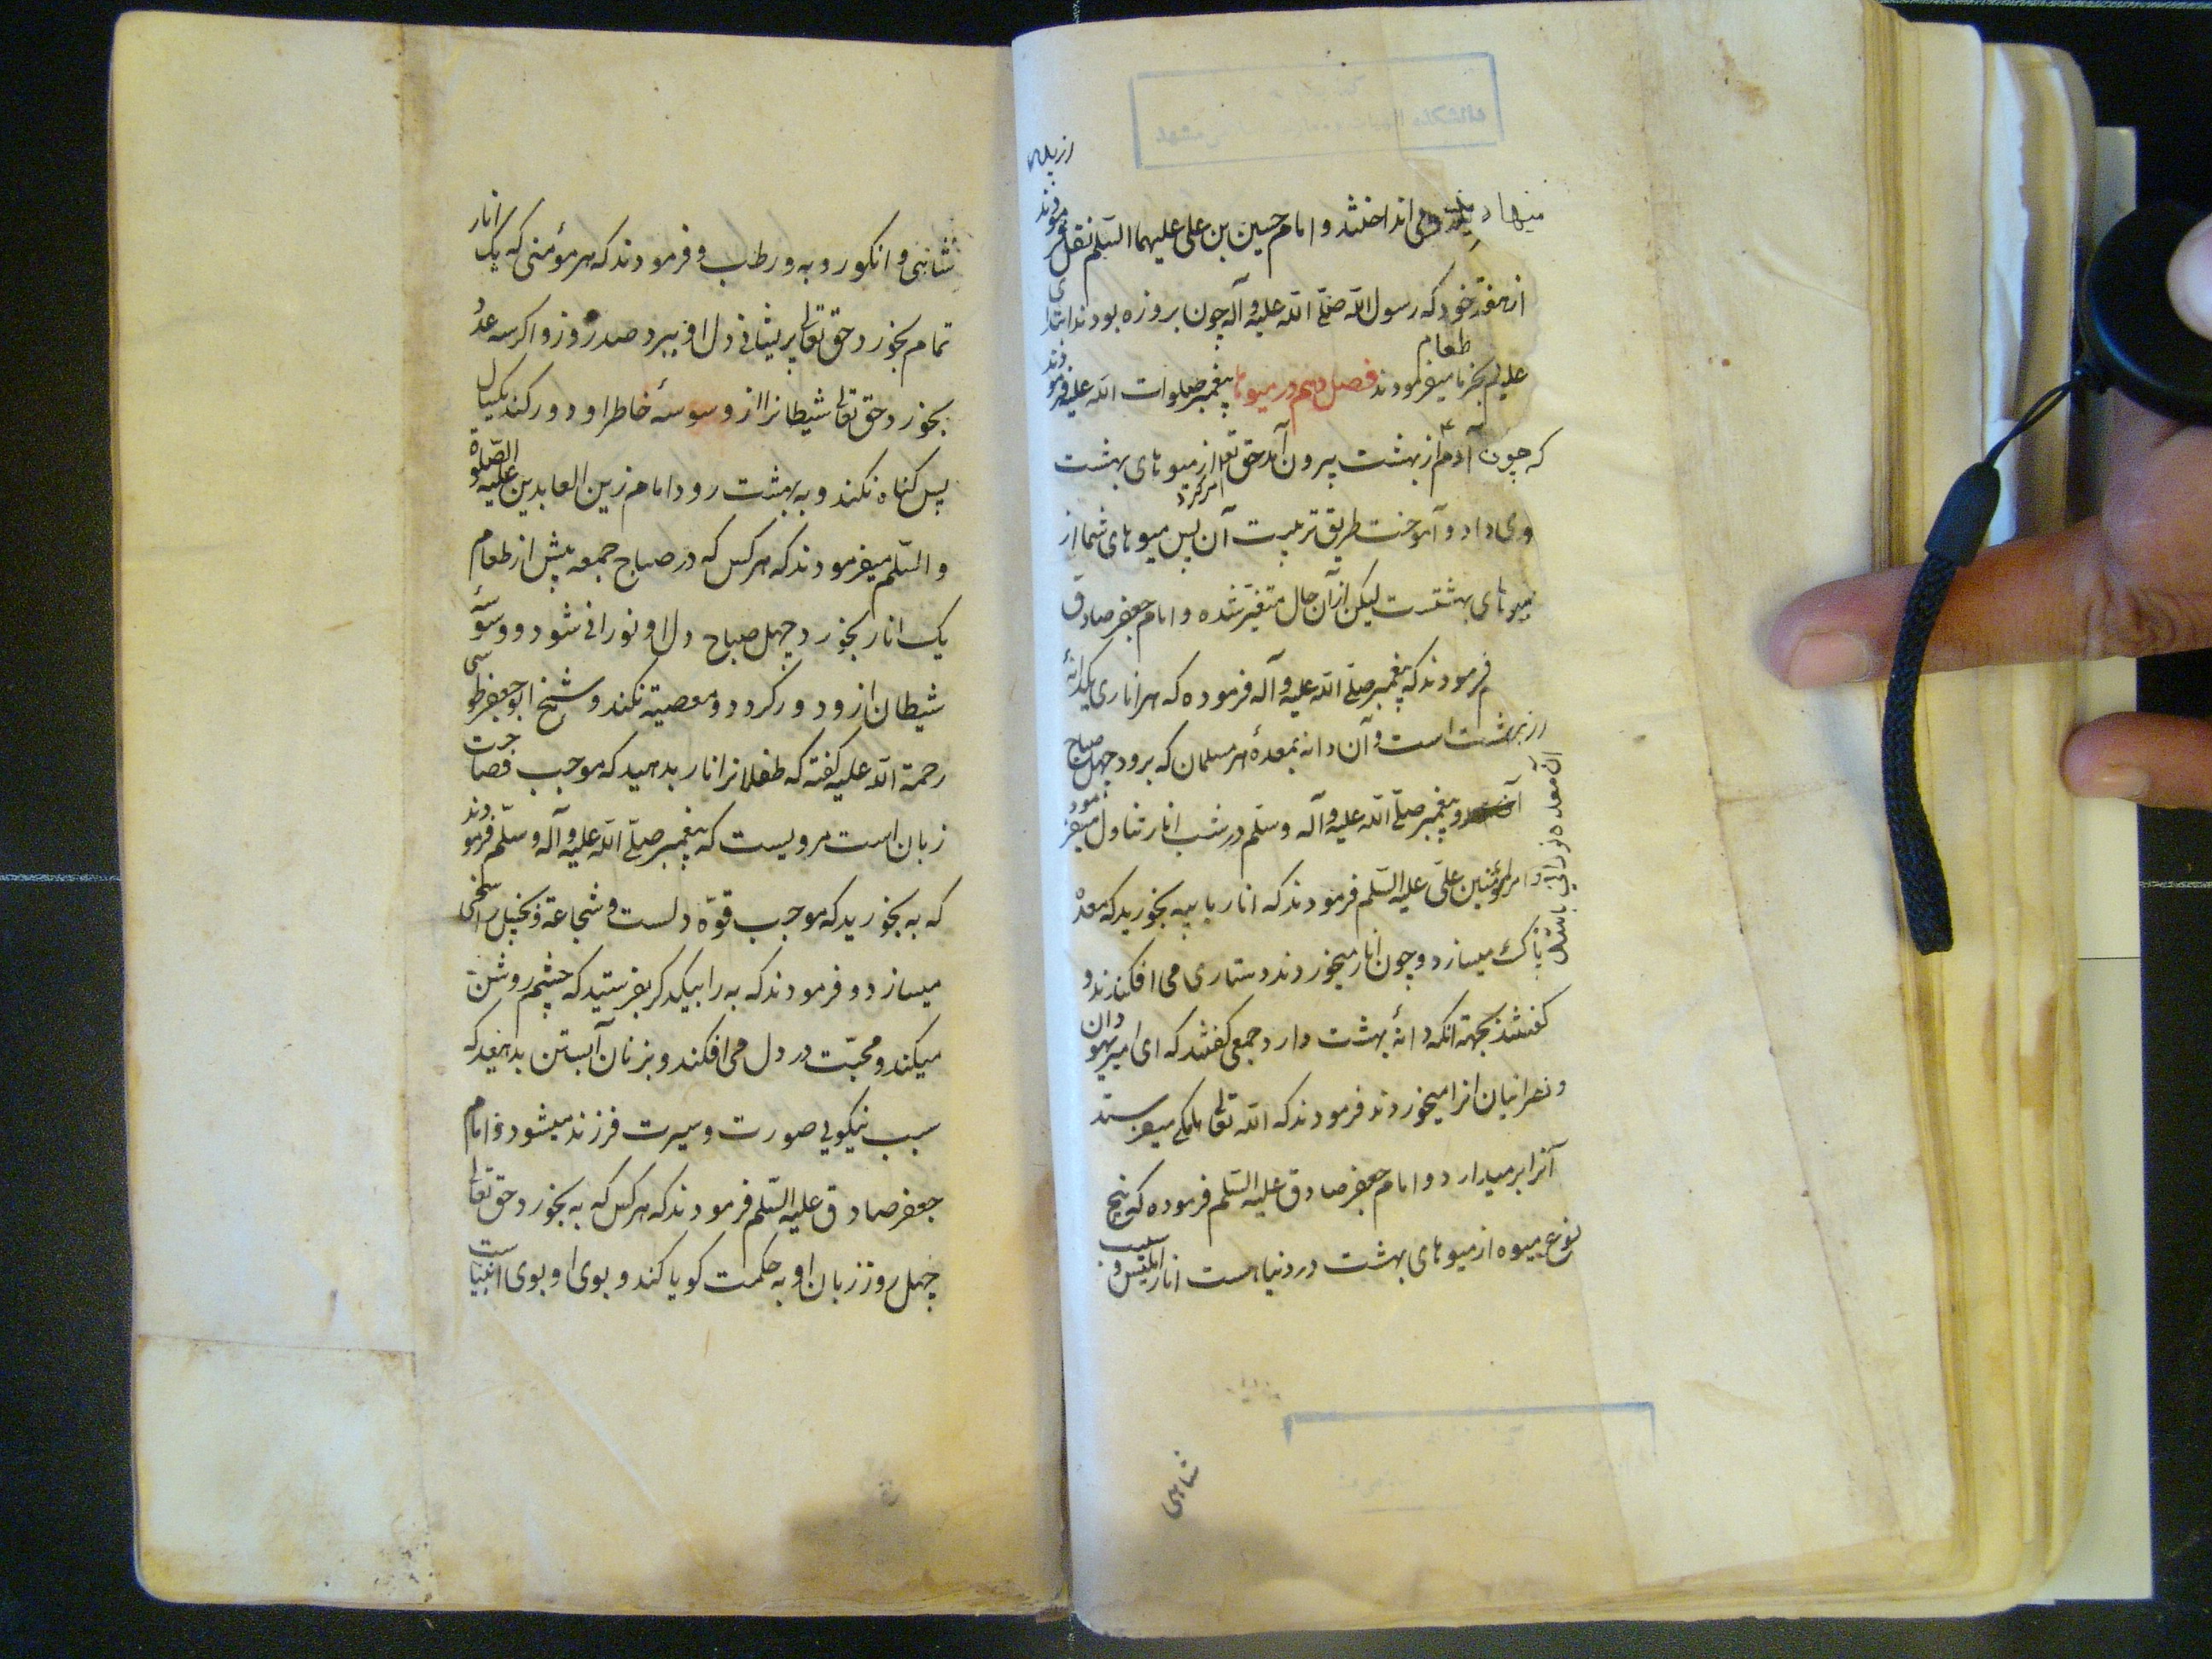 مینهاد می انداختند و امام حسین بن علی علیهما السّلم نقل فرمودند
که رسول اللّه صلّی اللّه علیه و آله چون بروزه بودند ابتدای
طعام بخرما میفرمودند فصل دهم در میوها پیغمبر صلوات اللّه علیه فرمودند
که چون آدم از بهشت بیرون آمد حق تعا امر کرد از میوهای بهشت
وی داد و آموخت طریق تربیت آن پس میوهای شما از
میوهای بهشتست لیکن از آن حال متغیّر شده و امام جعفر صادق
فرمودند که پیغمبر صلّی اللّه علیه و آله فرموده که هر اناری یکدانهٔ
از بهشت است و آن دانه بمعدهٔ هر مسلمان که برود چهل صباح
آن معده نورانی باشد
و پیغمبر صلّی اللّه علیه و آله وسلّم در شب انار تناول میفرمود
و امیر المؤمنین علی علیه السّلم فرمودند که انار با پیه بخورید که معده
پاک میسازد و چون انار میخوردند دستاری می افکندند و
کفتند بجهة انکه دانهٔ بهشت دارد جمعی کفتند که ای امیر یهودان
و نصرانیان انرا میخورند فرمودند که اللّه تعالی ملکی میفرستد
آنرا بر میدارد و امام جعفر صادق علیه السّلم فرموده که پنج
نوع میوه از میوهای بهشت در دنیا هست انار املیس و سیب
شاهی
شاهی و انکور و به و رطب و فرمودند که هر مؤمنی که یک انار
تمام بخورد حق تعالی پریشانی دل او ببرد صد روز و اکر سه عدد
بخورد حق تعالی شیطانرا از وسوسهٔ خاطر او دور کند یکسال
پس کناه نکند و به بهشت رود امام زین العابدین علیه الصّلوة
والسّلم میفرمودند که هر کس که در صباح جمعه پیش از طعام
یک انار بخورد چهل صباح دل او نورانی شود و وسوسهٔ
شیطان از و دور کردد و معصیة نکند و شیخ ابو جعفر طوسی
رحمة اللّه علیه کفته که طفلانرا انار بدهید که موجب فصاحت
زبان است مرویست که پیغمبر صلّی اللّه علیه و آله وسلّم فرمودند
که به بخورید که موجب قوّه دلست و شجاعة و بخیل را سخی
میسازد و فرمودند که به را بیکدکر بفرستید که چشم روشن
میکند و محبّت در دل می افکند و بزنان آبستن بدهید که
سبب نیکویی صورت و سیرت فرزند میشود و امام
جعفر صادق علیه السّلم فرمودند که هر کس که به بخورد حق تعالی
چهل روز زبان او به حکمت کویا کند و بوی او بوی انبیاست